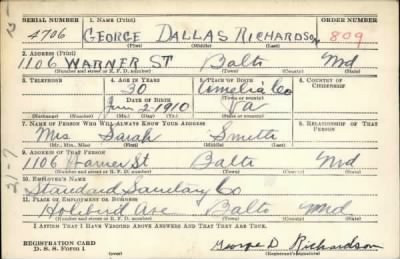 SERIAL NUMBER 1. NAME (Print) ORDER NUMBER
4706 GEORGE DALLAS RICHARDSON 809
(First) (Middle) (Last)
2. ADDRESS (Print)
1106 WARNER ST Balto Md
(Number and street or R. F. D. number) (Town) (County) (State)
3. TELEPHONE 4. AGE IN YEARS 5. PLACE OF BIRTH 6. COUNTRY OF CITIZENSHIP
30 Amelia Co
DATE OF BIRTH (Town or county)
2-1910 Va
(Exchange) (Number) (Mo.) (Day) (Yr.) (State or country)
7. NAME OF PERSON WHO WILL ALWAYS KNOW YOUR ADDRESS 8. RELATIONSHIP OF THAT PERSON
Mrs Sarah Smith
(Mr., Mrs., Miss) (First) (Middle) (Last)
9. ADDRESS OF THAT PERSON
1106 Warner St Balto Md
(Number and street or R. F. D. number) (Town) (County) (State)
10. EMPLOYER'S NAME
Standard Sanitary Co
11. PLACE OF EMPLOYMENT OR BUSINESS
Holibird Ave Balto Md
(Number and street or R. F. D. number) (Town) (County) (State)
I AFFIRM THAT I HAVE VERIFIED ABOVE ANSWERS AND THAT THEY ARE TRUE.
REGISTRATION CARD
D. S. S. Form 1 George D Richardson
(Registrant's signature)